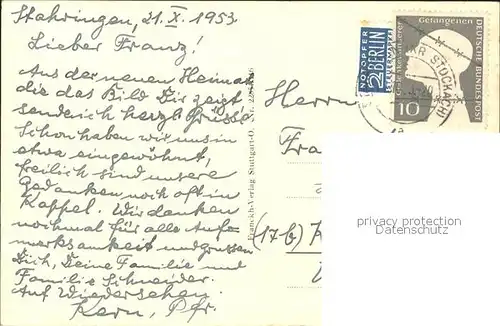 Stahringen, 21. X. 1953.
Lieber Franz!
Aus der neuen Heimat,
die das Bild Dir zeigt
sende ich herzl. Grüsse.
Schon haben wir uns in
etwa eingewöhnt,
freilich sind unsere
Gedanken noch oft in
Kappel. Wir danken
nochmal für alle Aufm-
merksamkeit und grüssen
Dich, Deine Familie und
Familie Schneider.
Auf Wiedersehen.
Kern, Pfr.
Franckh-Verlag Stuttgart-O.
Herrn
Fra
(17b)
NOTOPFER
2 BERLIN
STEUERMARKE
Gefangenen
DEUTSCHE BUNDESPOST
10
STOCKACH
privacy protection
Datenschutz